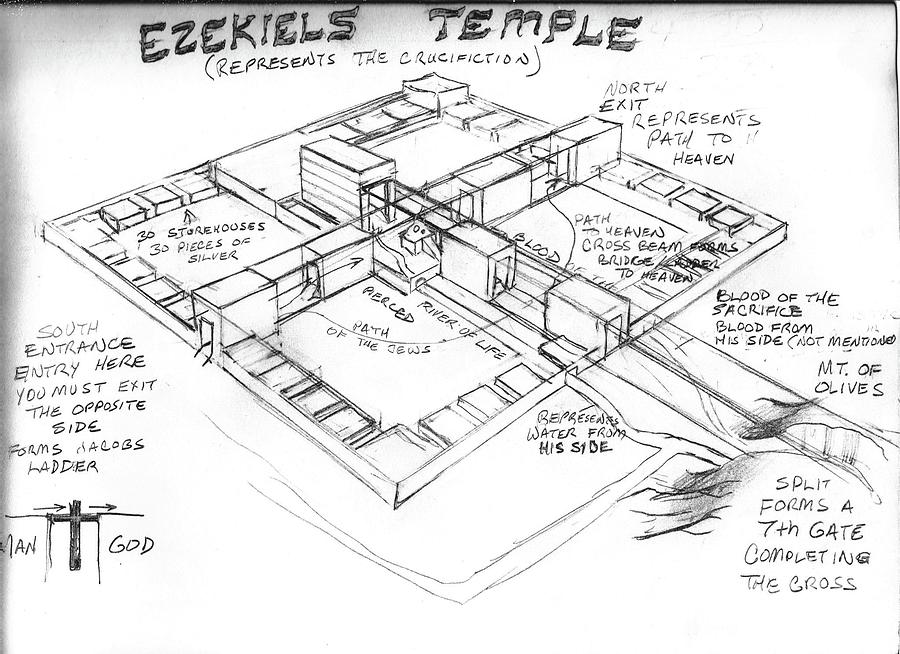 EZEKIELS TEMPLE
(REPRESENTS THE CRUCIFICTION)
NORTH
EXIT
REPRESENTS
PATH TO
HEAVEN
30 STOREHOUSES
30 PIECES OF
SILVER
PATH
TO HEAVEN
CROSS BEAM FORMS
BRIDGE LADDER
TO HEAVEN
BLOOD
PIERCED
RIVER OF LIFE
PATH
OF THE JEWS
BLOOD OF THE
SACRIFICE
BLOOD FROM
HIS SIDE (NOT MENTIONED
MT. OF
OLIVES
SOUTH
ENTRANCE
ENTRY HERE
YOU MUST EXIT
THE OPPOSITE
SIDE
FORMS JACOBS
LADDER
REPRESENTS
WATER FROM
HIS SIDE
SPLIT
FORMS A
7th GATE
COMPLETING
THE CROSS
MAN GOD